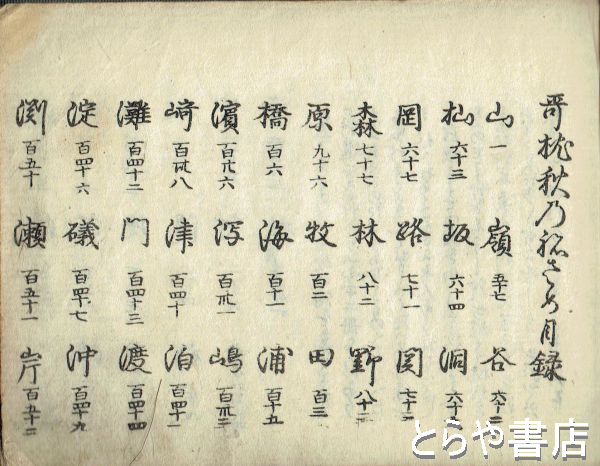 哥枕秋乃祢さめ目録
山 一 嶺 五十七 谷
杣 六十三 坂 六十四 洞
岡 六十七 路 七十一 関
森 七十七 林 八十二 野
原 九十六 牧 百二 田 百三
橋 百六 海 百十一 浦 百十五
濱 百廿六 泻 百卅一 嶋 百卅三
崎 百卅八 津 百四十 泊 百四十一
灘 百四十二 門 百四十三 渡 百四十四
淀 百四十六 礒 百四十七 沖 百四十九
渕 百五十 瀬 百五十一 岸 百五十二
とらや書店